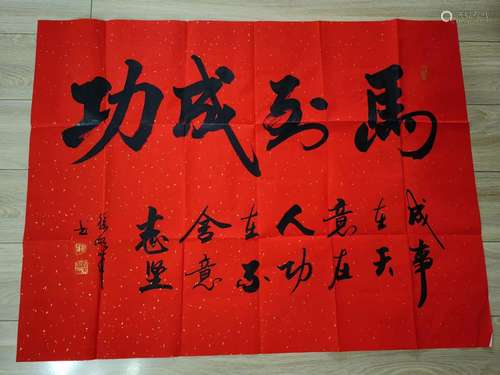 馬到成功
成事
在天
意在
人功
在不
舍意
志坚
书